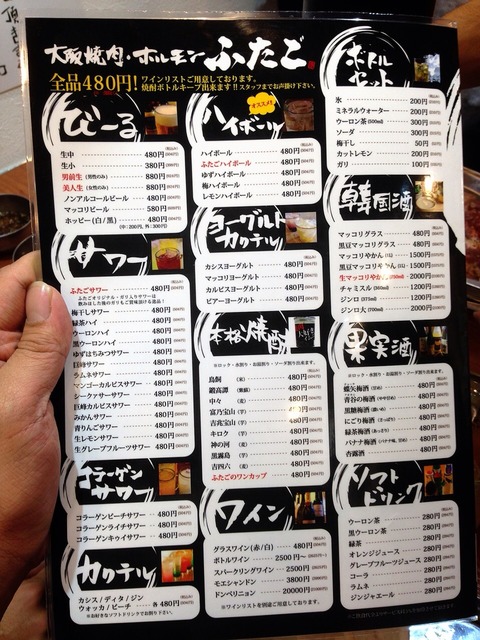 大阪焼肉・ホルモン ふたご
全品480円! ワインリストご用意しております。
焼酎ボトルキープ出来ます!!スタッフまでお声掛け下さい。
びーる
生中 480円
生小 380円
男前生 (男性のみ) 880円
美人生 (女性のみ) 880円
ノンアルコールビール 480円
マッコリビール 580円
ホッピー(白/黒) 480円
(中:200円、外:300円)
サワー
ふたごサワー 480円
ふたごオリジナル・ガリ入りサワーは
飲みほした後のガリもご賞味頂ける逸品!
梅干しサワー 480円
緑茶ハイ 480円
ウーロンハイ 480円
黒ウーロンハイ 480円
ゆずはちみつサワー 480円
巨峰サワー 480円
ラムネサワー 480円
マンゴーカルピスサワー 480円
シークァサーサワー 480円
巨峰カルピスサワー 480円
みかんサワー 480円
青りんごサワー 480円
生レモンサワー 480円
生グレープフルーツサワー 480円
コラーゲンサワー
コラーゲンピーチサワー 480円
コラーゲンライチサワー 480円
コラーゲンキウイサワー 480円
カクテル
カシス/ディタ/ジン
ウォッカ/ピーチ 各480円
※お好きなソフトドリンクでお割り下さい。
ハイボール
オススメ!
ハイボール 480円
ふたごハイボール 480円
ゆずハイボール 480円
梅ハイボール 480円
レモンハイボール 480円
ヨーグルトカクテル
カシスヨーグルト 480円
マッコリヨーグルト 480円
カルピスヨーグルト 480円
ビアーヨーグルト 480円
本格焼酎
※ロック・水割り・お湯割り・ソーダ割り出来ます。
鳥飼 (米) 480円
鍛高譚 (紫蘇) 480円
中々 (麦) 480円
富乃宝山 (芋) 480円
吉兆宝山 (芋) 480円
キロク (芋) 480円
神の河 (麦) 480円
黒霧島 (芋) 480円
吉四六 (麦) 480円
ふたごのワンカップ 480円
ワイン
グラスワイン(赤/白) 480円
ボトルワイン 2500円～
スパークリングワイン 2500円
モエシャンドン 3800円
ドンペリニョン 20000円
※ワインリストを別途ご用意しております。
ボトルセット
氷 200円
ミネラルウォーター 200円
ウーロン茶 (500ml) 300円
ソーダ 300円
梅干し 50円
カットレモン 200円
ガリ 100円
韓国酒
マッコリグラス 480円
黒豆マッコリグラス 480円
マッコリやかん (1L) 1500円
黒豆マッコリやかん (1L) 1500円
生マッコリやかん (750ml) 2000円
チャミスル (360ml) 1200円
ジンロ (375ml) 1200円
ジンロ大 (700ml) 2000円
果実酒
※ロック・水割り・お湯割り・ソーダ割り出来ます。
蝶矢梅酒 480円
黒糖梅酒 480円
にごり梅酒 480円
緑茶梅酒 480円
バナナ梅酒 480円
杏露酒 480円
ソフトドリンク
ウーロン茶 280円
黒ウーロン茶 280円
緑茶 280円
オレンジジュース 280円
グレープフルーツジュース 280円
コーラ 280円
ラムネ 280円
ジンジャエール 280円